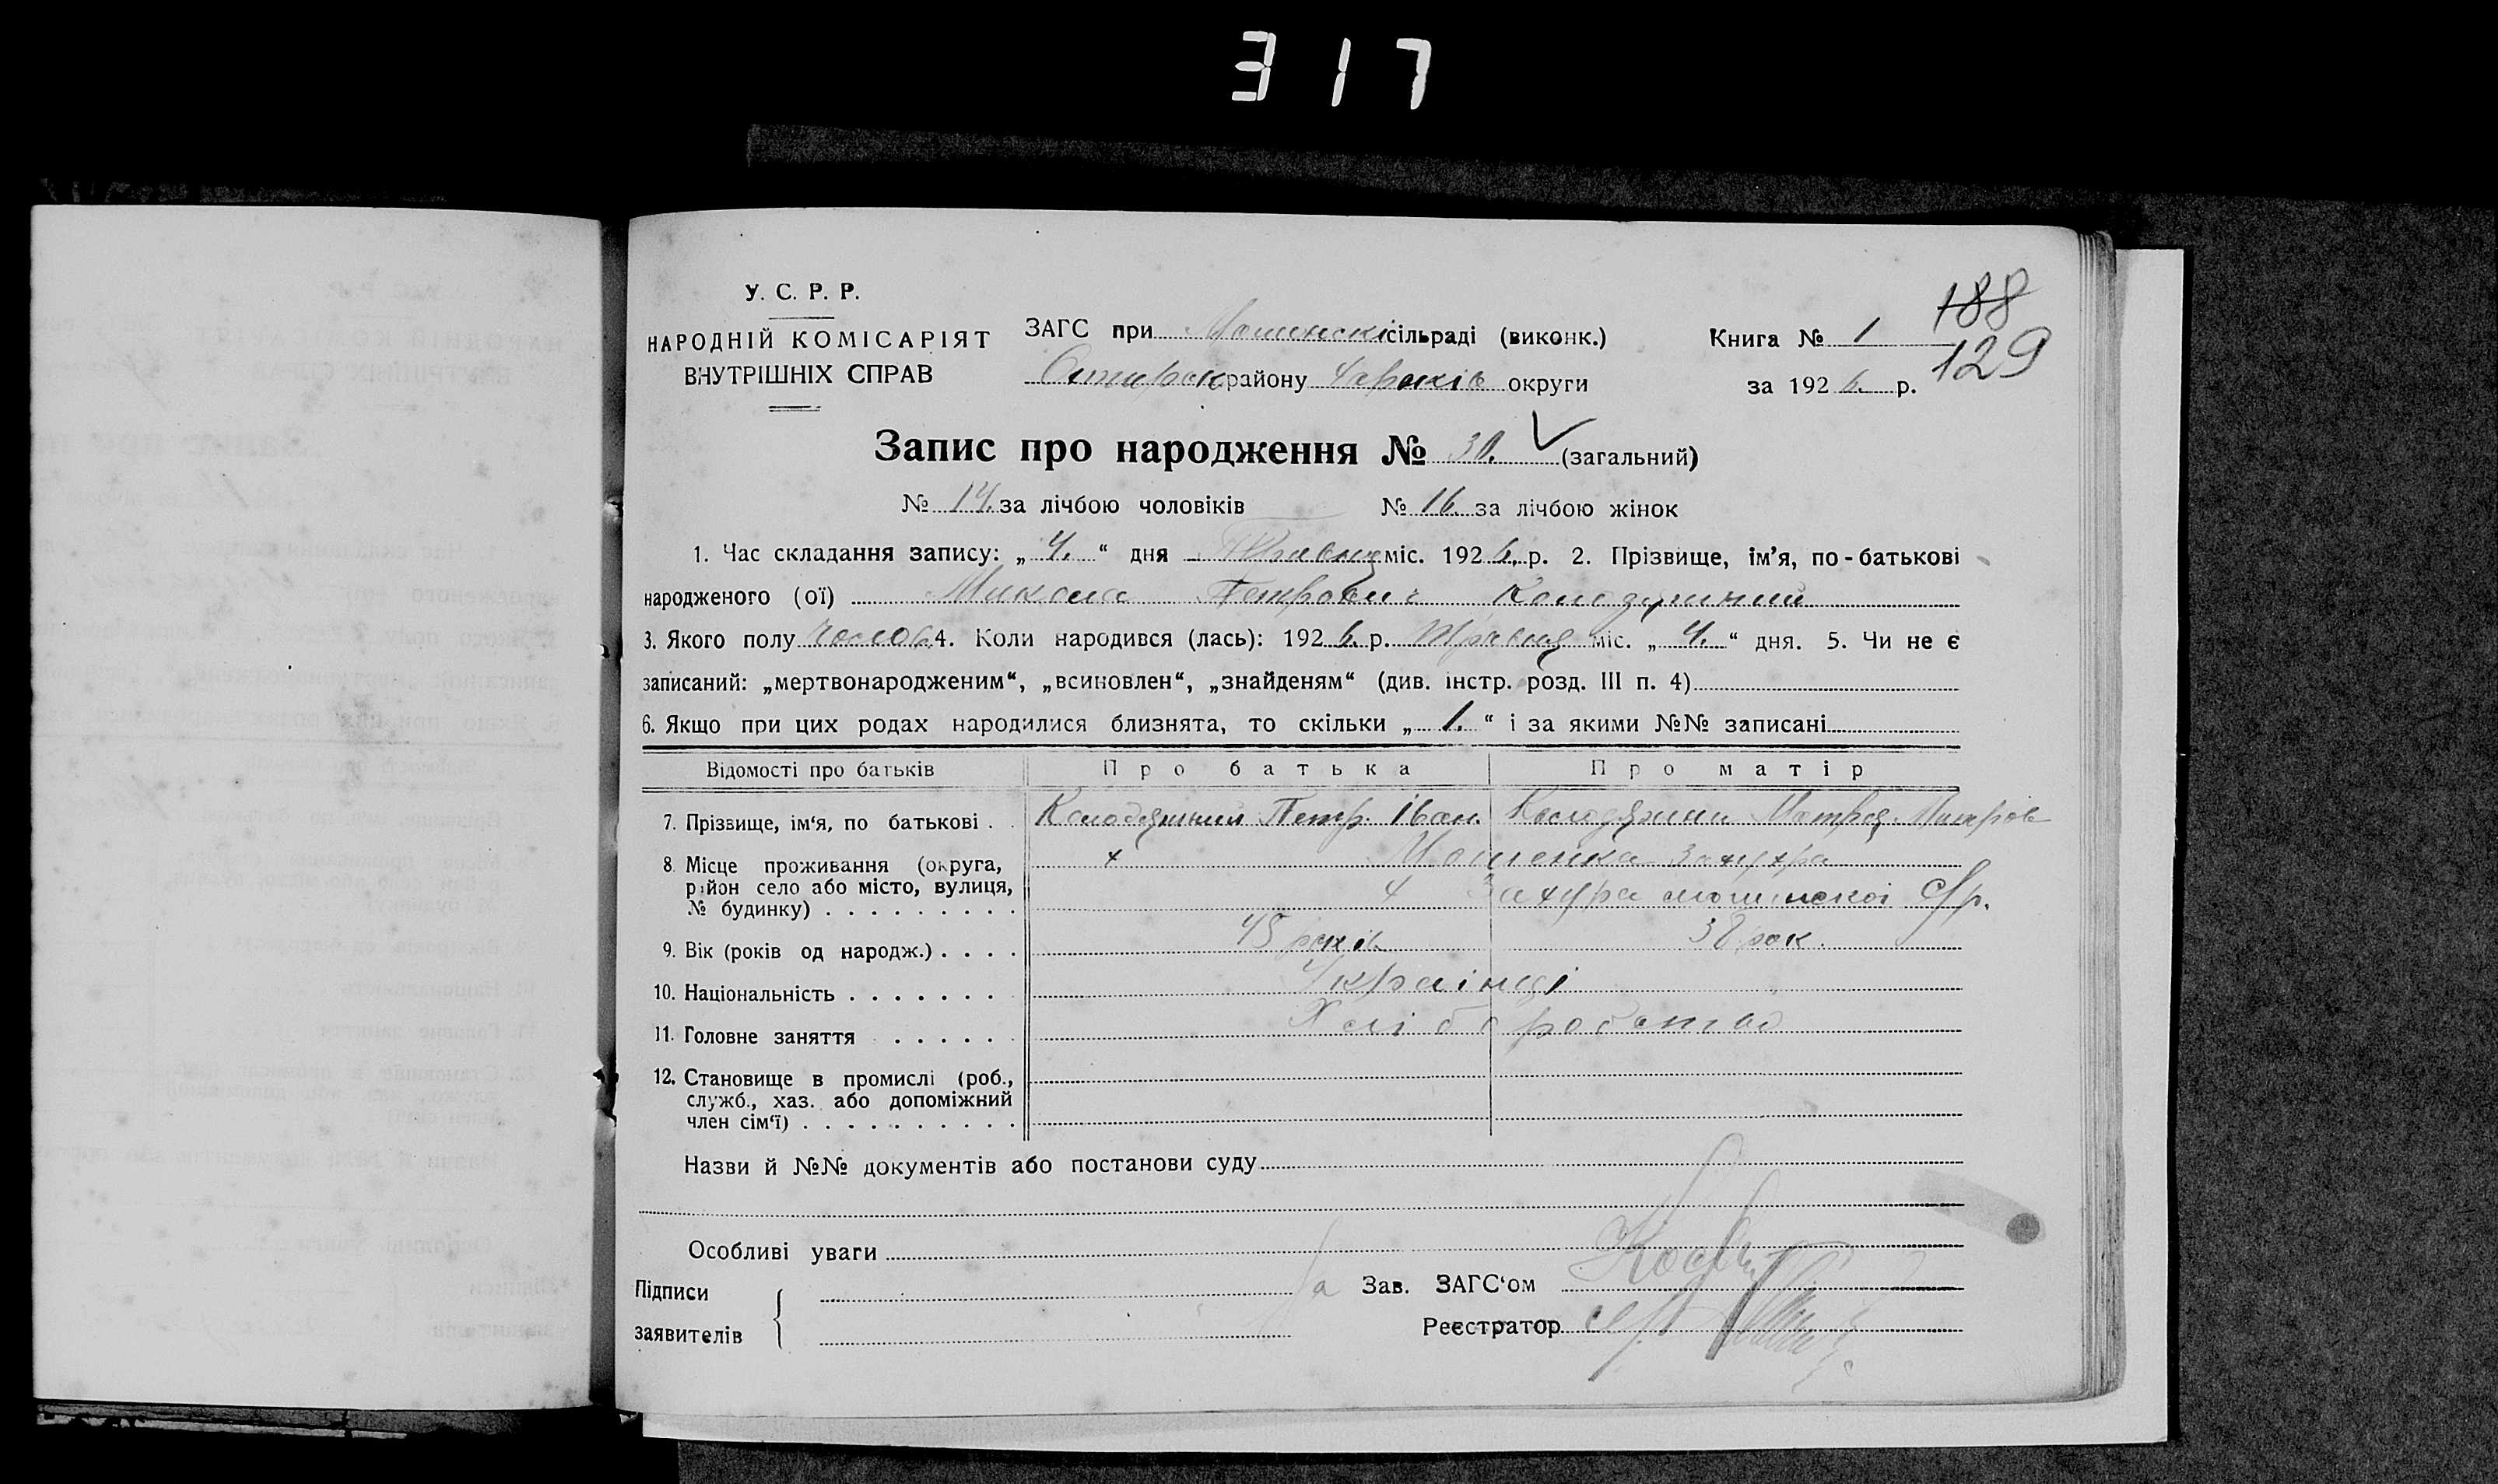 317
У. С. Р. Р.
НАРОДНІЙ КОМІСАРІЯТ
ВНУТРІШНІХ СПРАВ
ЗАГС при сільраді (виконк.)
району Харьків округи
Книга № 1
за 1926 р.
188
129
Запис про народження № 30. (загальний)
№ 14. за лічбою чоловіків № 16. за лічбою жінок
1. Час складання запису: „ 4. “ дня Травня міс. 1926. р. 2. Прізвище, ім’я, по-батькові
народженого (ої) Микола Петрович
3. Якого полу 4. Коли народився (лась): 1926. р. Травня міс. „ 4. “ дня. 5. Чи не є
записаний: „мертвонародженим“, „всиновлен“, „знайденям“ (див. інстр. розд. III п. 4)
6. Якщо при цих родах народилися близнята, то скільки „ 1. “ і за якими №№ записані
Відомості про батьків Про батька Про матір
7. Прізвище, ім‘я, по батькові . . Петр. Іван.
8. Місце проживання (округа,
район село або місто, вулиця,
№ будинку) . . . . . . . . .
9. Вік (років од народж.) . . . . 45 років 38 рок.
10. Національність . . . . . . . Українці
11. Головне заняття . . . . . . Хліборобство
12. Становище в промислі (роб.,
служб., хаз. або допоміжний
член сім‘ї) . . . . . . . . . .
Назви й №№ документів або постанови суду
Особливі уваги
Підписи
заявителів
Зав. ЗАГС‘ом
Реєстратор